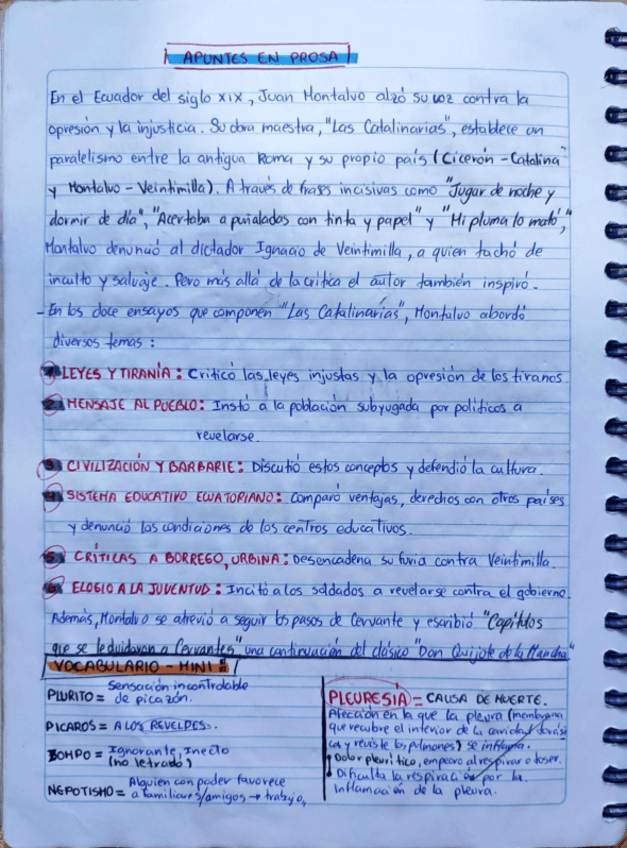 APUNTES EN PROSA
En el Ecuador del siglo XIX, Juan Montalvo alzó su voz contra la
opresión y la injusticia. Su obra maestra, "Las Catalinarias", establece un
paralelismo entre la antigua Roma y su propio país (Cicerón - Catalina
y Montalvo - Veintimilla). A través de frases incisivas como "Jugar de noche y
dormir de día", "Acertaba a puñaladas con tinta y papel" y "Mi pluma lo mató",
Montalvo denunció al dictador Ignacio de Veintimilla, a quien tachó de
inculto y salvaje. Pero más allá de la crítica el autor también inspiró.
- En los doce ensayos que componen "Las Catalinarias", Montalvo abordó
diversos temas:
1 LEYES Y TIRANÍA: Criticó las leyes injustas y la opresión de los tiranos
2 MENSAJE AL PUEBLO: Instó a la población subyugada por políticos a
revelarse.
3 CIVILIZACIÓN Y BARBARIE: Discutió estos conceptos y defendió la cultura.
4 SISTEMA EDUCATIVO ECUATORIANO: Comparó ventajas, derechos con otros países
y denunció las condiciones de los centros educativos.
5 CRÍTICAS A BORREGO, URBINA: Desencadena su furia contra Veintimilla.
6 ELOGIO A LA JUVENTUD: Incitó a los soldados a revelarse contra el gobierno.
Además, Montalvo se atrevió a seguir los pasos de Cervante y escribió "Capítulos
que se le olvidaron a Cervantes" una continuación del clásico "Don Quijote de la Mancha"
VOCABULARIO - MINI
PLURITO = Sensación incontrolable
de picazón.
PICAROS = A LOS REVELDES.
BOMPO = Ignorante, Inecto
(no letrado)
NEPOTISMO = Alguien con poder favorece
a familiares/amigos → trabajo,
PLEURESIA = CAUSA DE MUERTE.
Afección en la que la pleura (membrana
que recubre el interior de la cavidad
y reviste los pulmones) se inflama.
• Dolor pleurítico, empeora al respirar o toser.
• Dificulta la respiración por la
inflamación de la pleura.